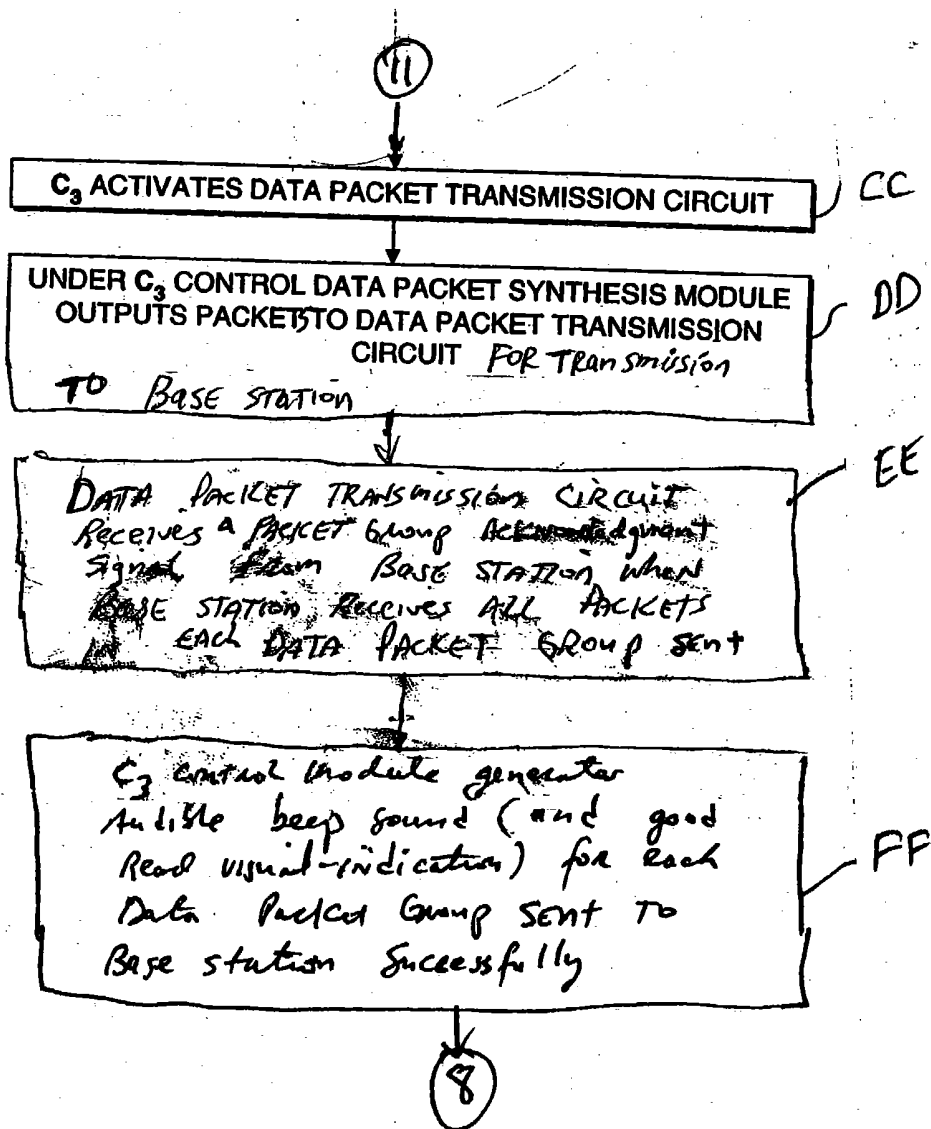 11
C₃ ACTIVATES DATA PACKET TRANSMISSION CIRCUIT
CC
UNDER C₃ CONTROL DATA PACKET SYNTHESIS MODULE
OUTPUTS PACKETS TO DATA PACKET TRANSMISSION
CIRCUIT FOR Transmission
TO Base STATION
DD
DATA PACKET TRANSMISSION CIRCUIT
Receives a PACKET Group Acknowledgment
Signal From Base STATION when
BASE STATION Receives ALL PACKETS
EACH DATA PACKET GROUP SENT
EE
C₃ control module generates
Audible beep sound (and good
Read visual-indication) for each
Data Packet Group SENT TO
Base station Successfully
FF
8